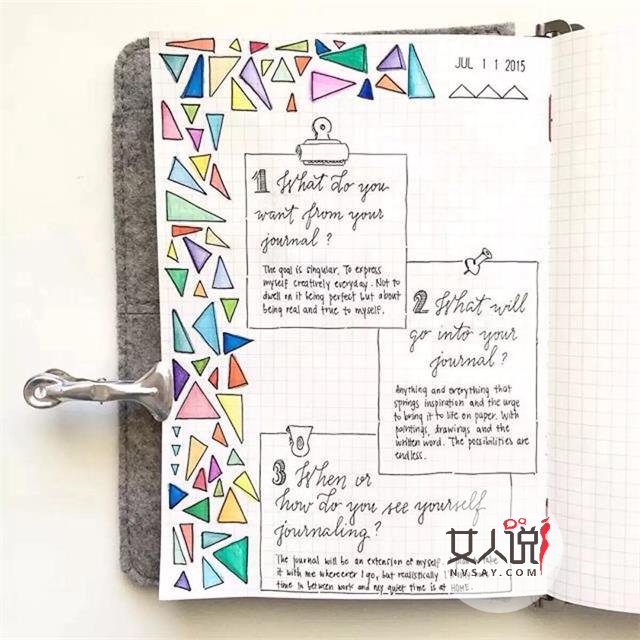 JUL 11 2015
1 What do you
want from your
journal?
The goal is singular. To express
myself creatively everyday. Not to
dwell on it being perfect but about
being real and true to myself.
2 What will
go into your
journal?
Anything and everything that
springs inspiration and the urge
to bring it to life on paper. With
paintings, drawings and the
written word. The possibilities are
endless.
3 When or
how do you see yourself
journaling?
The journal will be an extension of myself. take
it with me whereever I go, but realistically
time in between work and my quiet time is at HOME.
女人说
NVSAY.COM